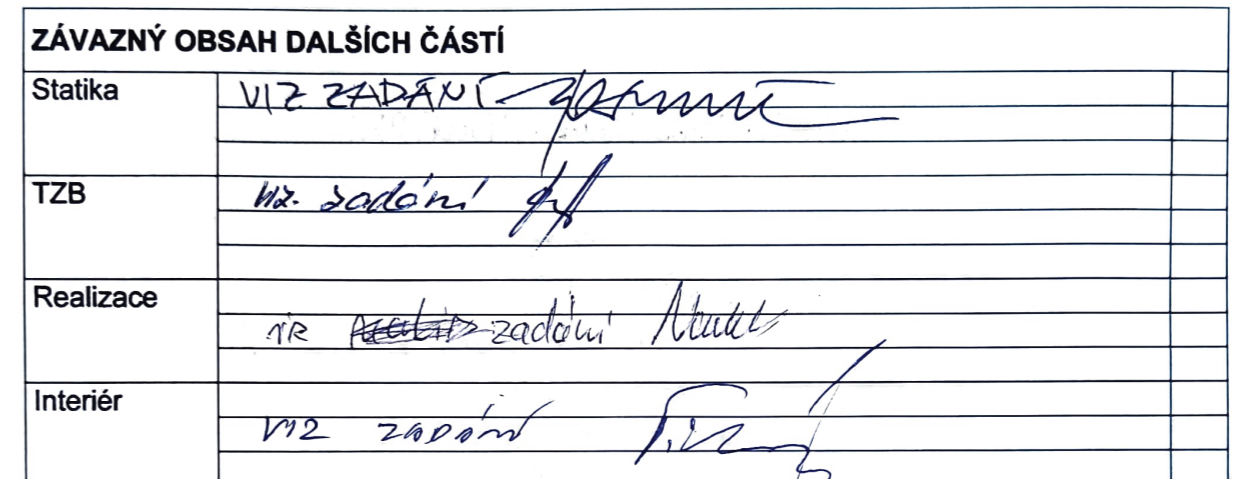 ZÁVAZNÝ OBSAH DALŠÍCH ČÁSTÍ
Statika VIZ ZADÁNÍ
TZB viz. zadání
Realizace viz zadání
Interiér VIZ ZADÁNÍ